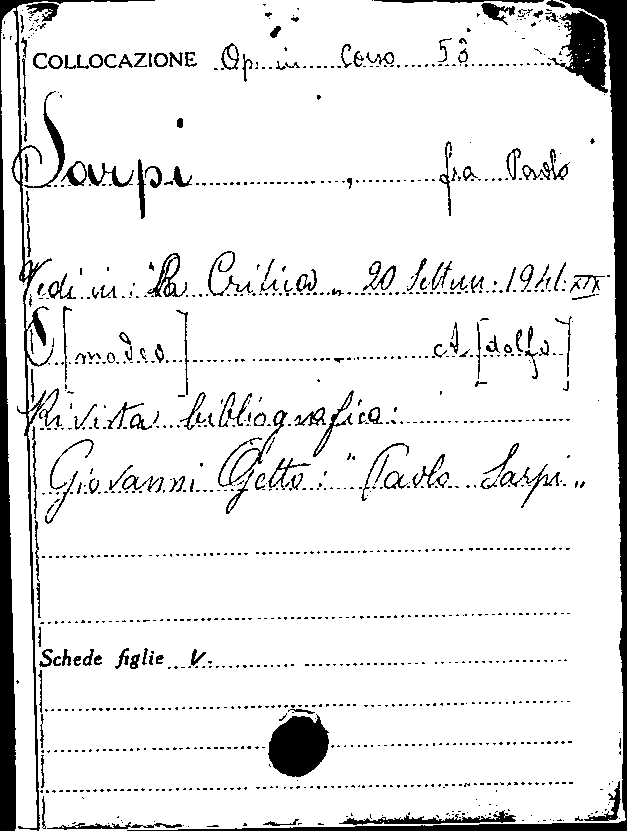 COLLOCAZIONE Op. in Corso 53
Sarpi , fra Paolo
Vedi in: "La Critica" 20 Settem. 1941 XIX
O[modeo] A[dolfo]
Rivista bibliografica:
Giovanni Getto: "Paolo Sarpi"
Schede figlie V.